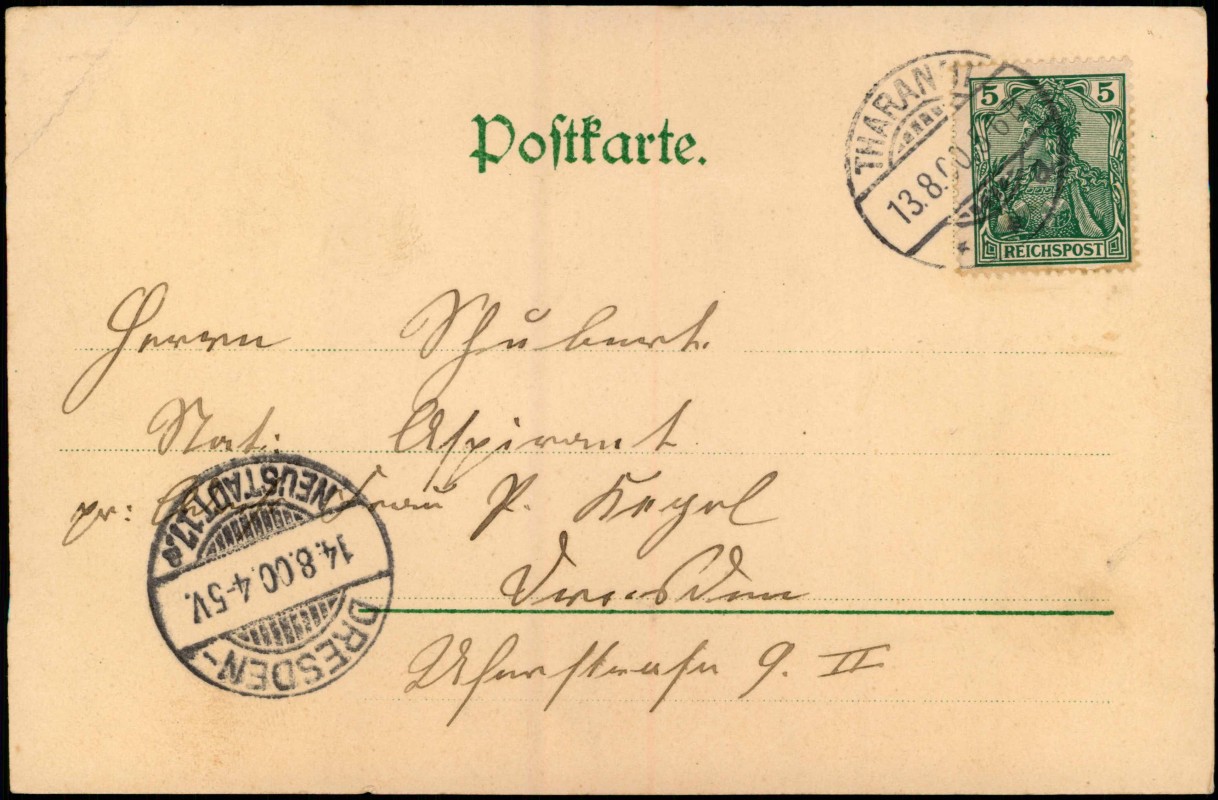 Postkarte.
THARANDT
13.8.00.
5 5
REICHSPOST
Herrn Schubert.
Stat: Aspirant
pr: Frau P. Kegel
Dresden
Uferstraße 9. II
DRESDEN-
NEUSTADT 17.a
14.8.00.4-5V.